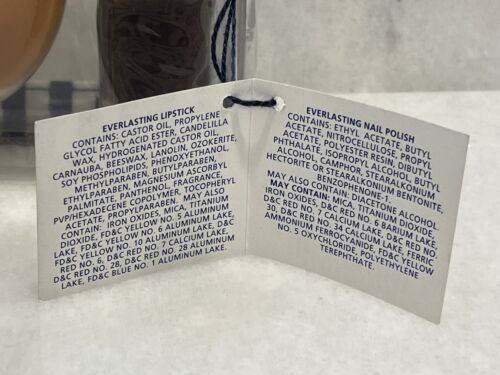 EVERLASTING LIPSTICK
CONTAINS: CASTOR OIL, PROPYLENE
GLYCOL FATTY ACID ESTER, CANDELILLA
WAX, HYDROGENATED CASTOR OIL,
CARNAUBA, BEESWAX, LANOLIN, OZOKERITE,
SOY PHOSPHOLIPIDS, PHENOXYETHANOL,
METHYLPARABEN, BUTYLPARABEN,
ETHYL PARABEN, MAGNESIUM ASCORBYL
PALMITATE, PANTHENOL, FRAGRANCE,
PVP/HEXADECENE COPOLYMER, TOCOPHERYL
ACETATE, PROPYLPARABEN. MAY ALSO
CONTAIN: IRON OXIDES, MICA, TITANIUM
DIOXIDE, FD&C YELLOW NO. 5 ALUMINUM
LAKE, FD&C YELLOW NO. 6 ALUMINUM LAKE,
FD&C YELLOW NO. 10 ALUMINUM LAKE, D&C
RED NO. 6, D&C RED NO. 7 CALCIUM LAKE,
D&C RED NO. 28, D&C RED NO. 28 ALUMINUM
LAKE, FD&C BLUE NO. 1 ALUMINUM LAKE.
EVERLASTING NAIL POLISH
CONTAINS: ETHYL ACETATE, BUTYL
ACETATE, NITROCELLULOSE, PROPYL
ACETATE, POLYESTER RESIN, DIBUTYL
PHTHALATE, ISOPROPYL ALCOHOL, DIBUTYL
ALCOHOL, CAMPHOR, STEARALKONIUM
HECTORITE OR STEARALKONIUM BENTONITE,
BENZOPHENONE-1.
MAY ALSO CONTAIN: DIACETONE ALCOHOL.
MAY CONTAIN: MICA, TITANIUM DIOXIDE,
IRON OXIDES, D&C RED NO. 6 BARIUM LAKE,
D&C RED NO. 7 CALCIUM LAKE, D&C RED NO.
30, D&C RED NO. 34 CALCIUM LAKE, FERRIC
AMMONIUM FERROCYANIDE, FD&C YELLOW
NO. 5 OXYCHLORIDE, POLYETHYLENE
TEREPTHATE.